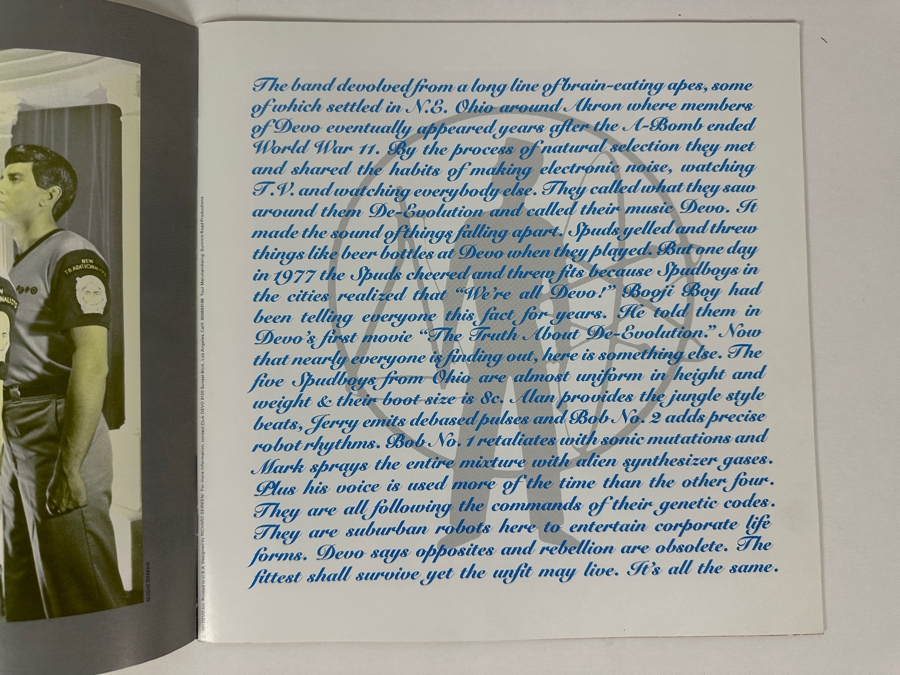 The band devolved from a long line of brain-eating apes, some
of which settled in N.E. Ohio around Akron where members
of Devo eventually appeared years after the A-Bomb ended
World War 11. By the process of natural selection they met
and shared the habits of making electronic noise, watching
T.V. and watching everybody else. They called what they saw
around them De-Evolution and called their music Devo. It
made the sound of things falling apart. Spuds yelled and threw
things like beer bottles at Devo when they played. But one day
in 1977 the Spuds cheered and threw fits because Spudboys in
the cities realized that “We’re all Devo!” Booji Boy had
been telling everyone this fact for years. He told them in
Devo’s first movie “The Truth About De-Evolution.” Now
that nearly everyone is finding out, here is something else. The
five Spudboys from Ohio are almost uniform in height and
weight & their boot size is 8c. Alan provides the jungle style
beats, Jerry emits debased pulses and Bob No. 2 adds precise
robot rhythms. Bob No. 1 retaliates with sonic mutations and
Mark sprays the entire mixture with alien synthesizer gases.
Plus his voice is used more of the time than the other four.
They are all following the commands of their genetic codes.
They are suburban robots here to entertain corporate life
forms. Devo says opposites and rebellion are obsolete. The
fittest shall survive yet the unfit may live. It’s all the same.
NEW
TRADITIONALISTS